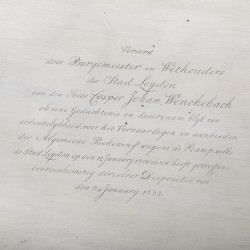 Vereerd
door Burgemeester en Wethouders
der Stad Leyden
aan den Heer Casper Johan Wenckebach
als eene Gedachtenis en duurzaam blijk van
erkentelijkheid, voor het Vervaardigen en aanbieden
der Algemeene Rekening wegens de Ramp, welke
de Stad Leyden op den 12 January heeft getroffen,
overeenkomstig derzelver Dispositie van
den 24 January